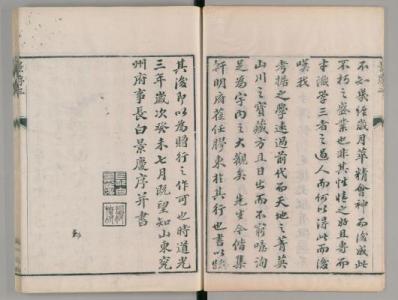 不知幾經歲月萃精會神而後成此
不朽之盛業也非其性情之好且專而
才識學三者之過人而何以得此而後
嘆我
考據之學遠過前代而天地之菁英
山川之寶藏方且日出而不窮噫洵
足為宇內之大觀矣 先生令偕集
軒明府蒞任膠東於其行也書以
其後即以為將行之作可也時道光
三年歲次癸未七月既望知山東兗
州府事長白景慶序并書